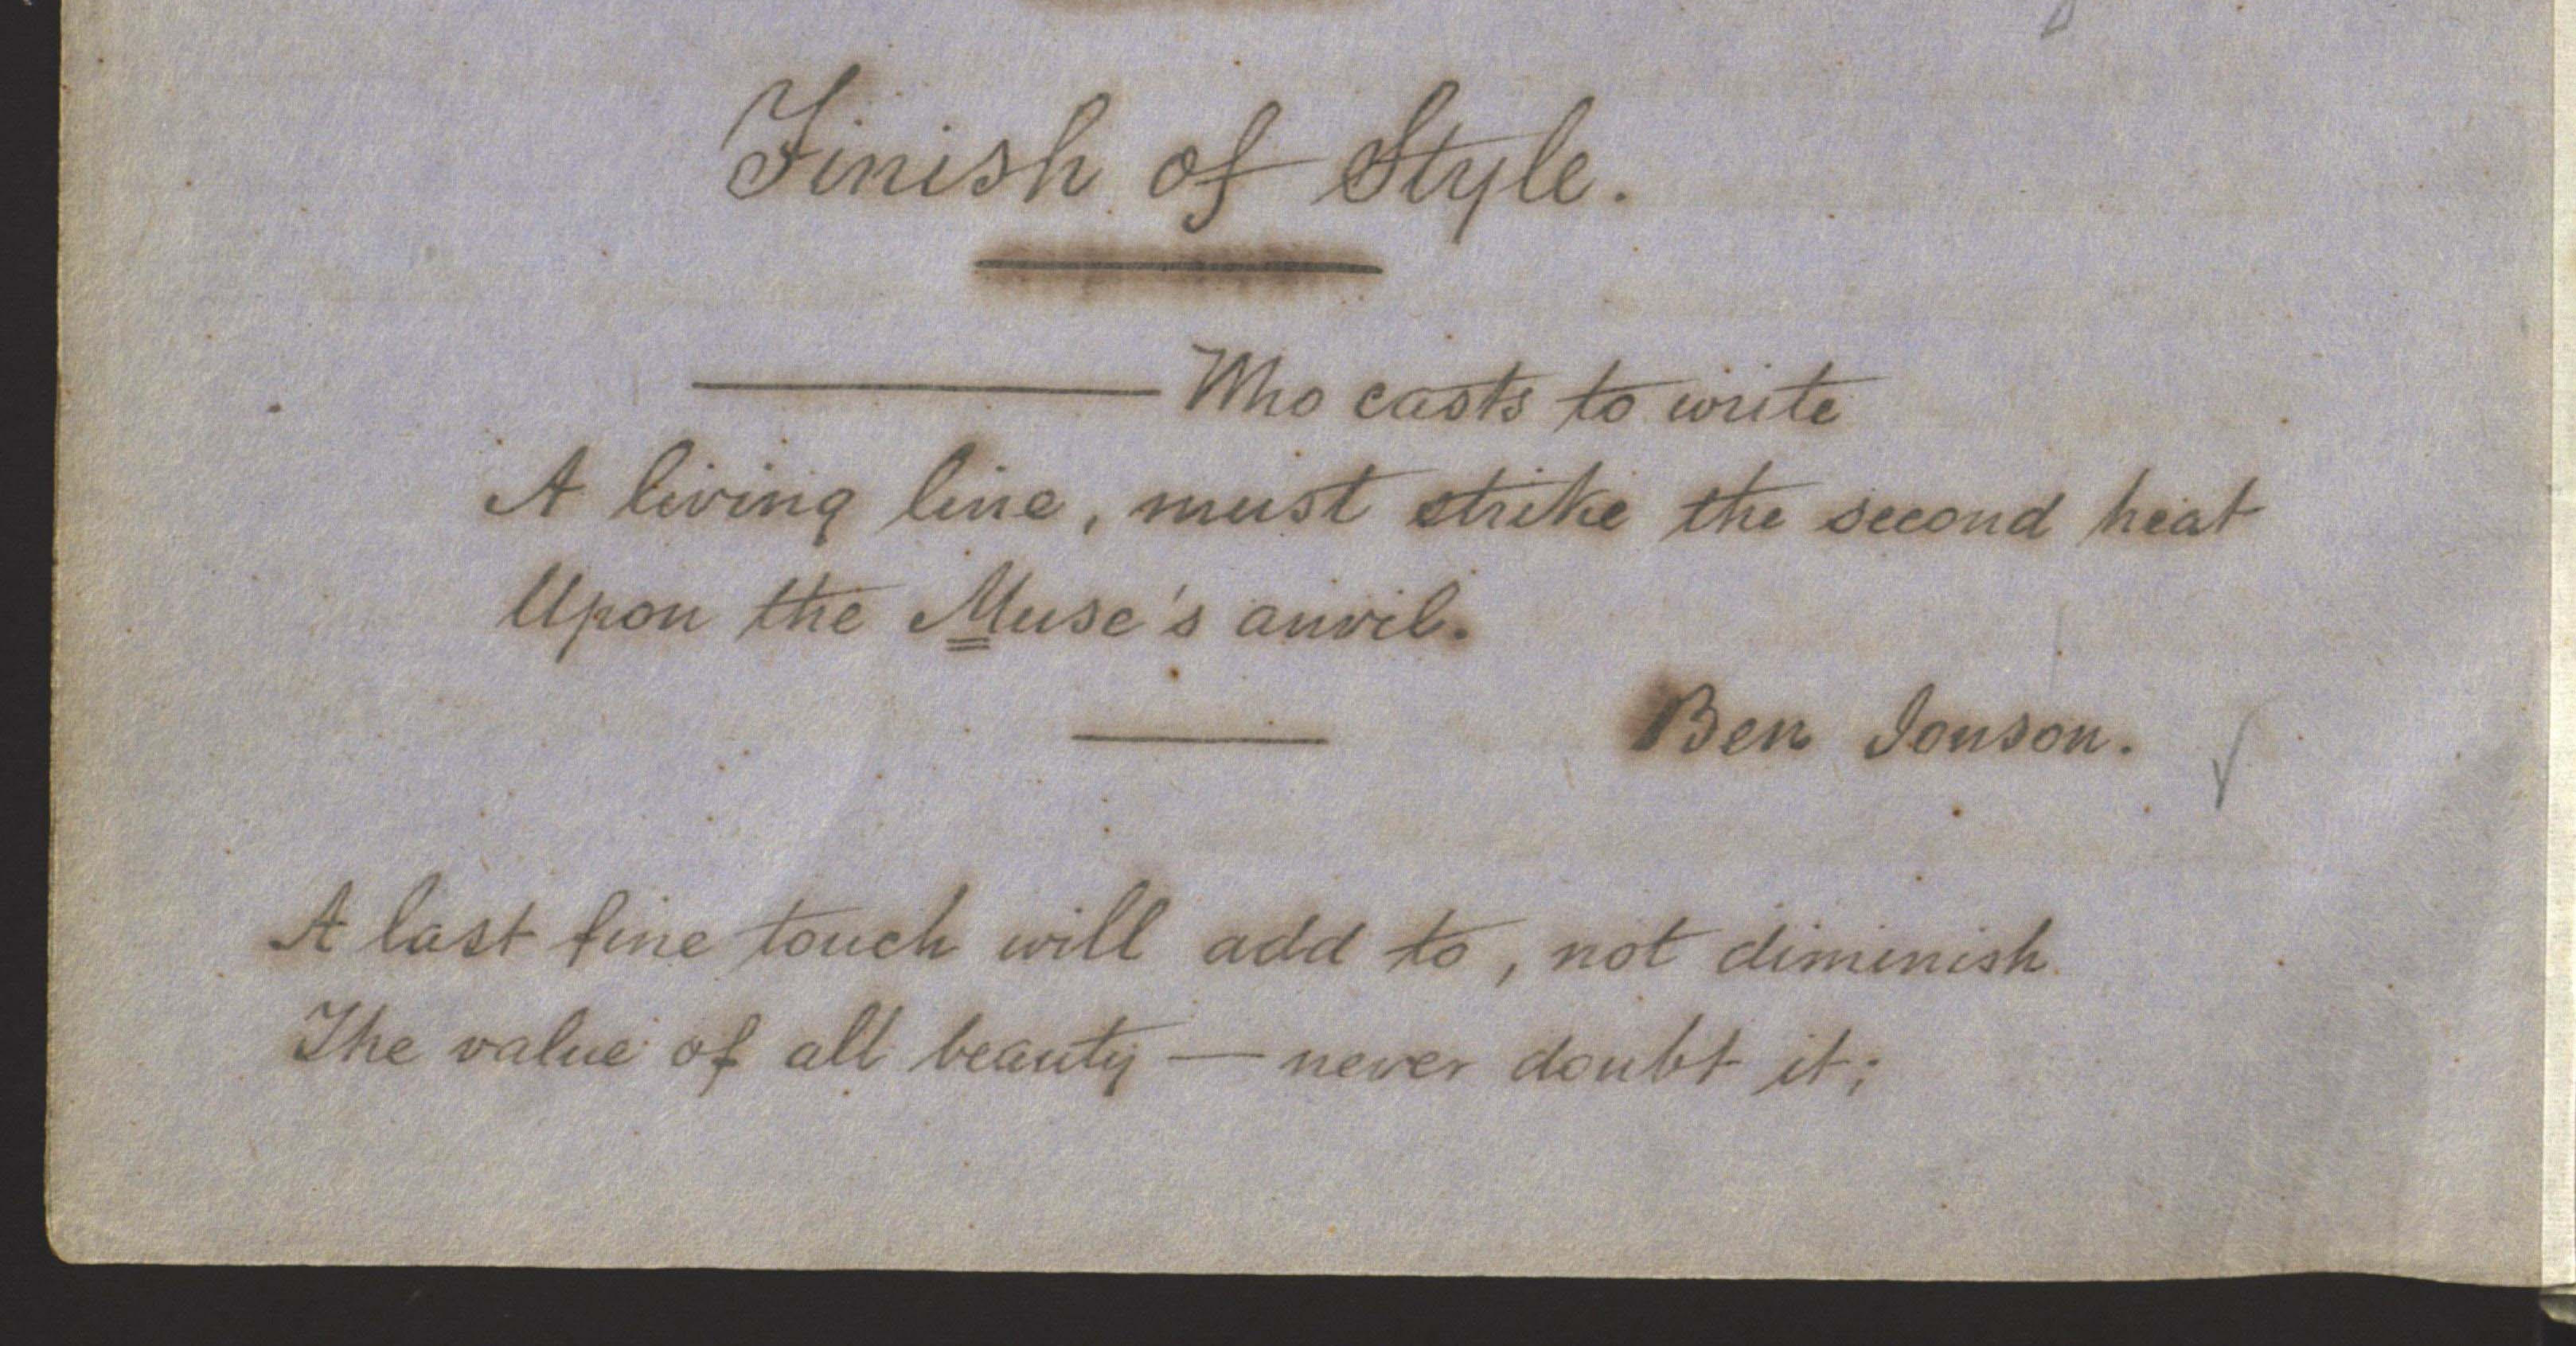 Finish of Style.
——— Who casts to write
A living line, must strike the second heat
Upon the Muse's anvil.
Ben Jonson.
A last fine touch will add to, not diminish
The value of all beauty — never doubt it;